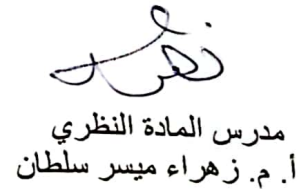 مدرس المادة النظري
أ. م. زهراء ميسر سلطان